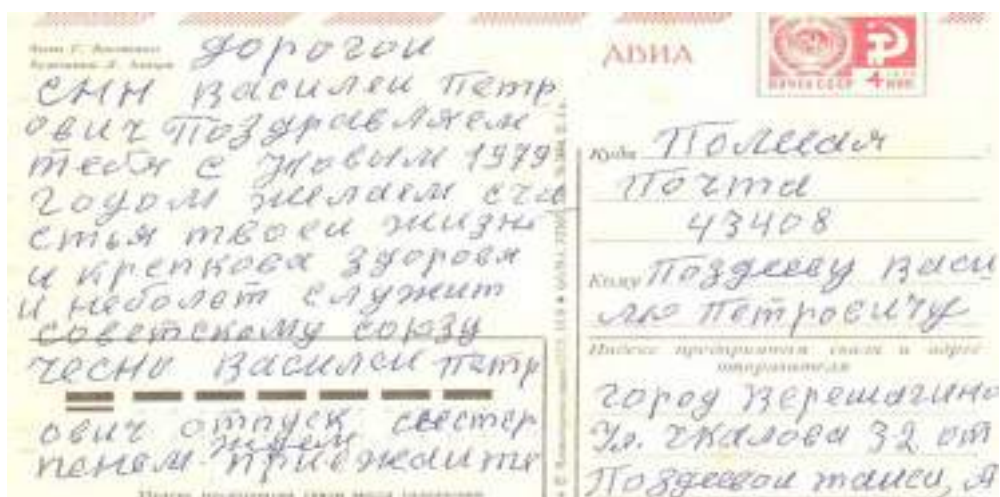 дорогои
СНН Василеи Петр
ович Поздравляем
тебя с Новым 1979
годом желаем сча
стья твоеи жизни
и крепкова здоровя
и неболет служит
советскому союзу
чесно Василеи Петр
ович отпуск
ждем
приежаите
АВИА
ПОЧТА СССР 4 КОП
Куда Полевая
Почта
43408
Кому Поздееву Васи
лю Петровичу
Индекс предприятия связи и адрес
отправителя
город Верещагино
Ул. Чкалова 32 от
Поздеевои